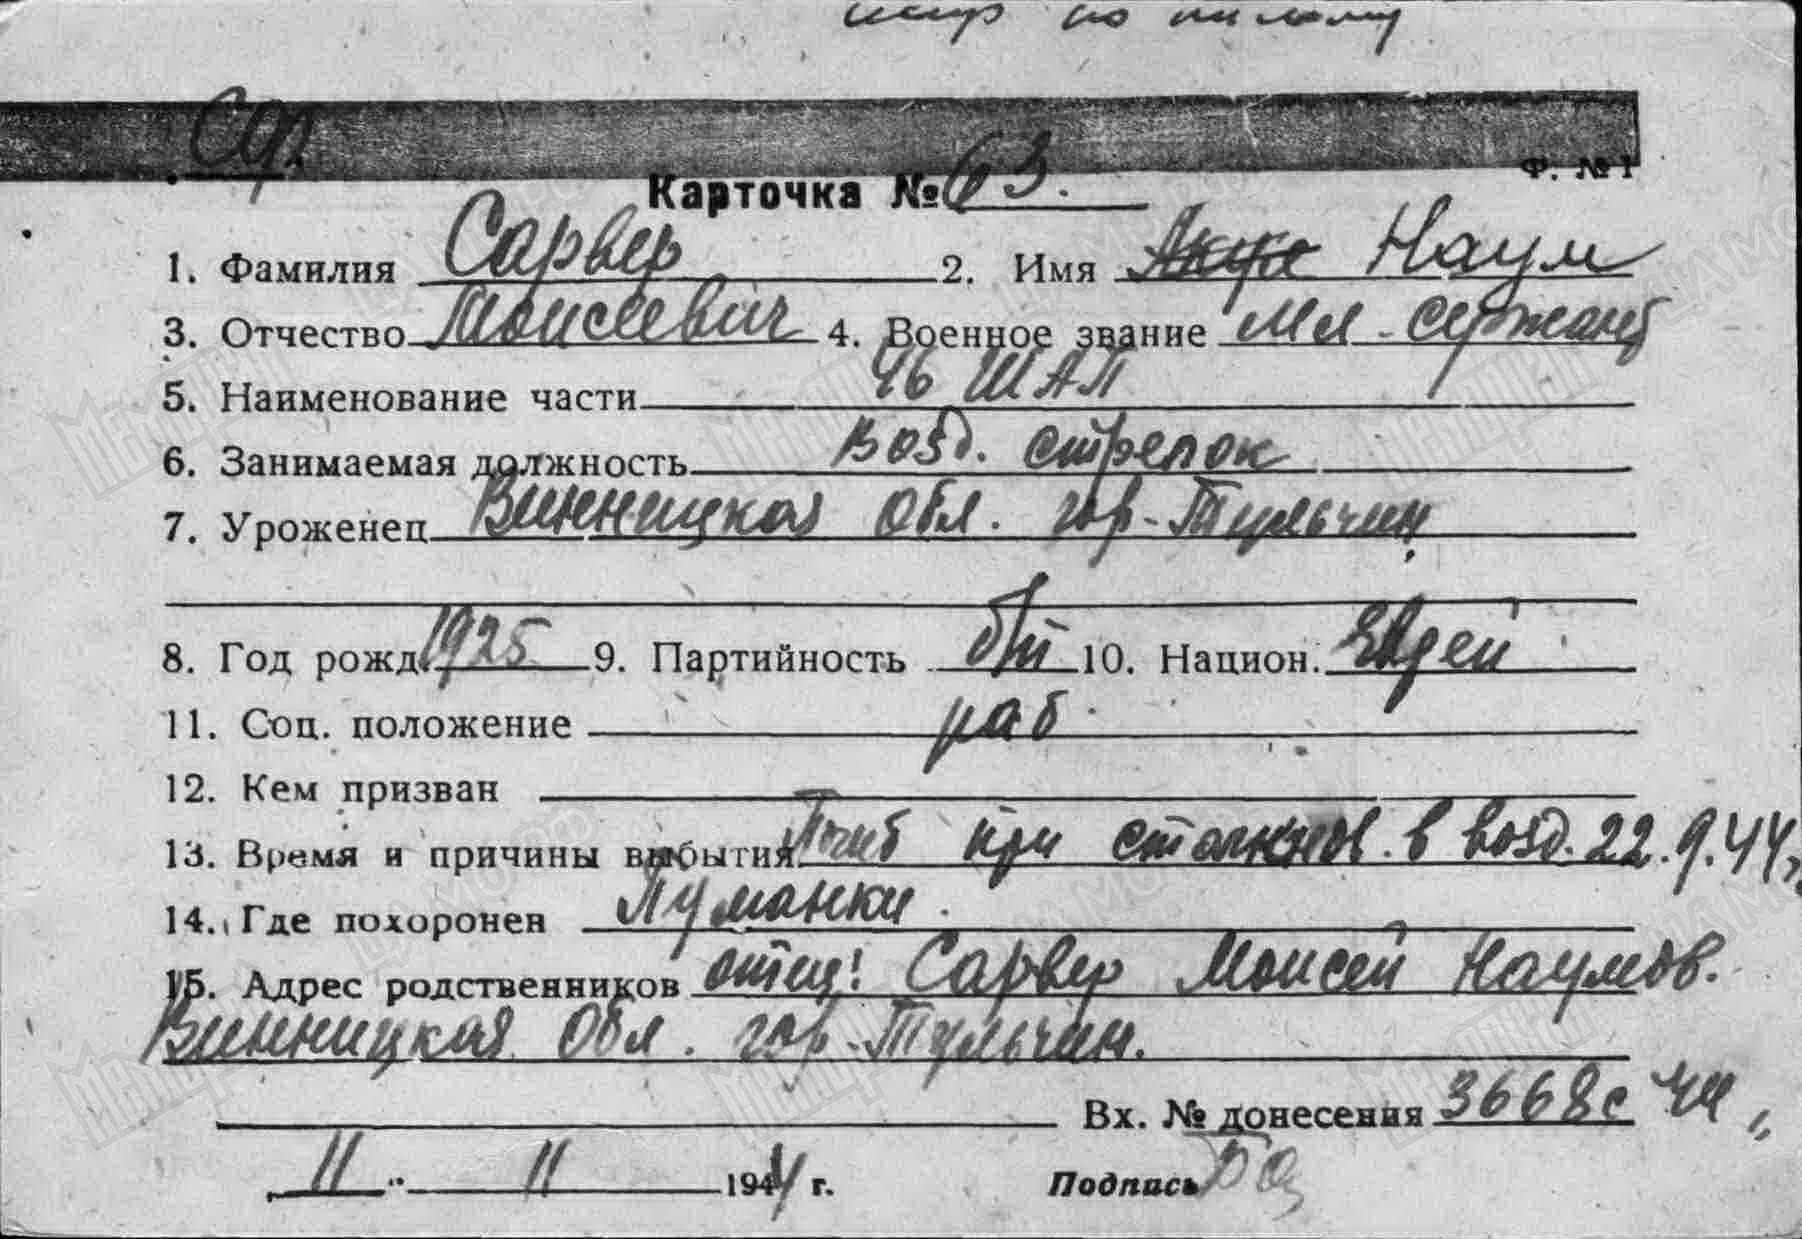 по письму
Сар.
Ф. № 1
Карточка № 63.
1. Фамилия Сарвер 2. Имя Наум
3. Отчество Моисеевич 4. Военное звание Мл-сержант
5. Наименование части 46 ШАП
6. Занимаемая должность возд. стрелок
7. Уроженец Винницкая обл. гор-Тульчин
8. Год рожд. 1925 9. Партийность б/п 10. Национ. Еврей
11. Соц. положение раб.
12. Кем призван
13. Время и причины выбытия Погиб при столкнов. в возд. 22.9.44г.
14. Где похоронен Луманки.
15. Адрес родственников отец: Сарвер Моисей Наумов.
Винницкая обл. гор-Тульчин.
Вх. № донесения 3668с 44
11 " 11 1944 г. Подпись